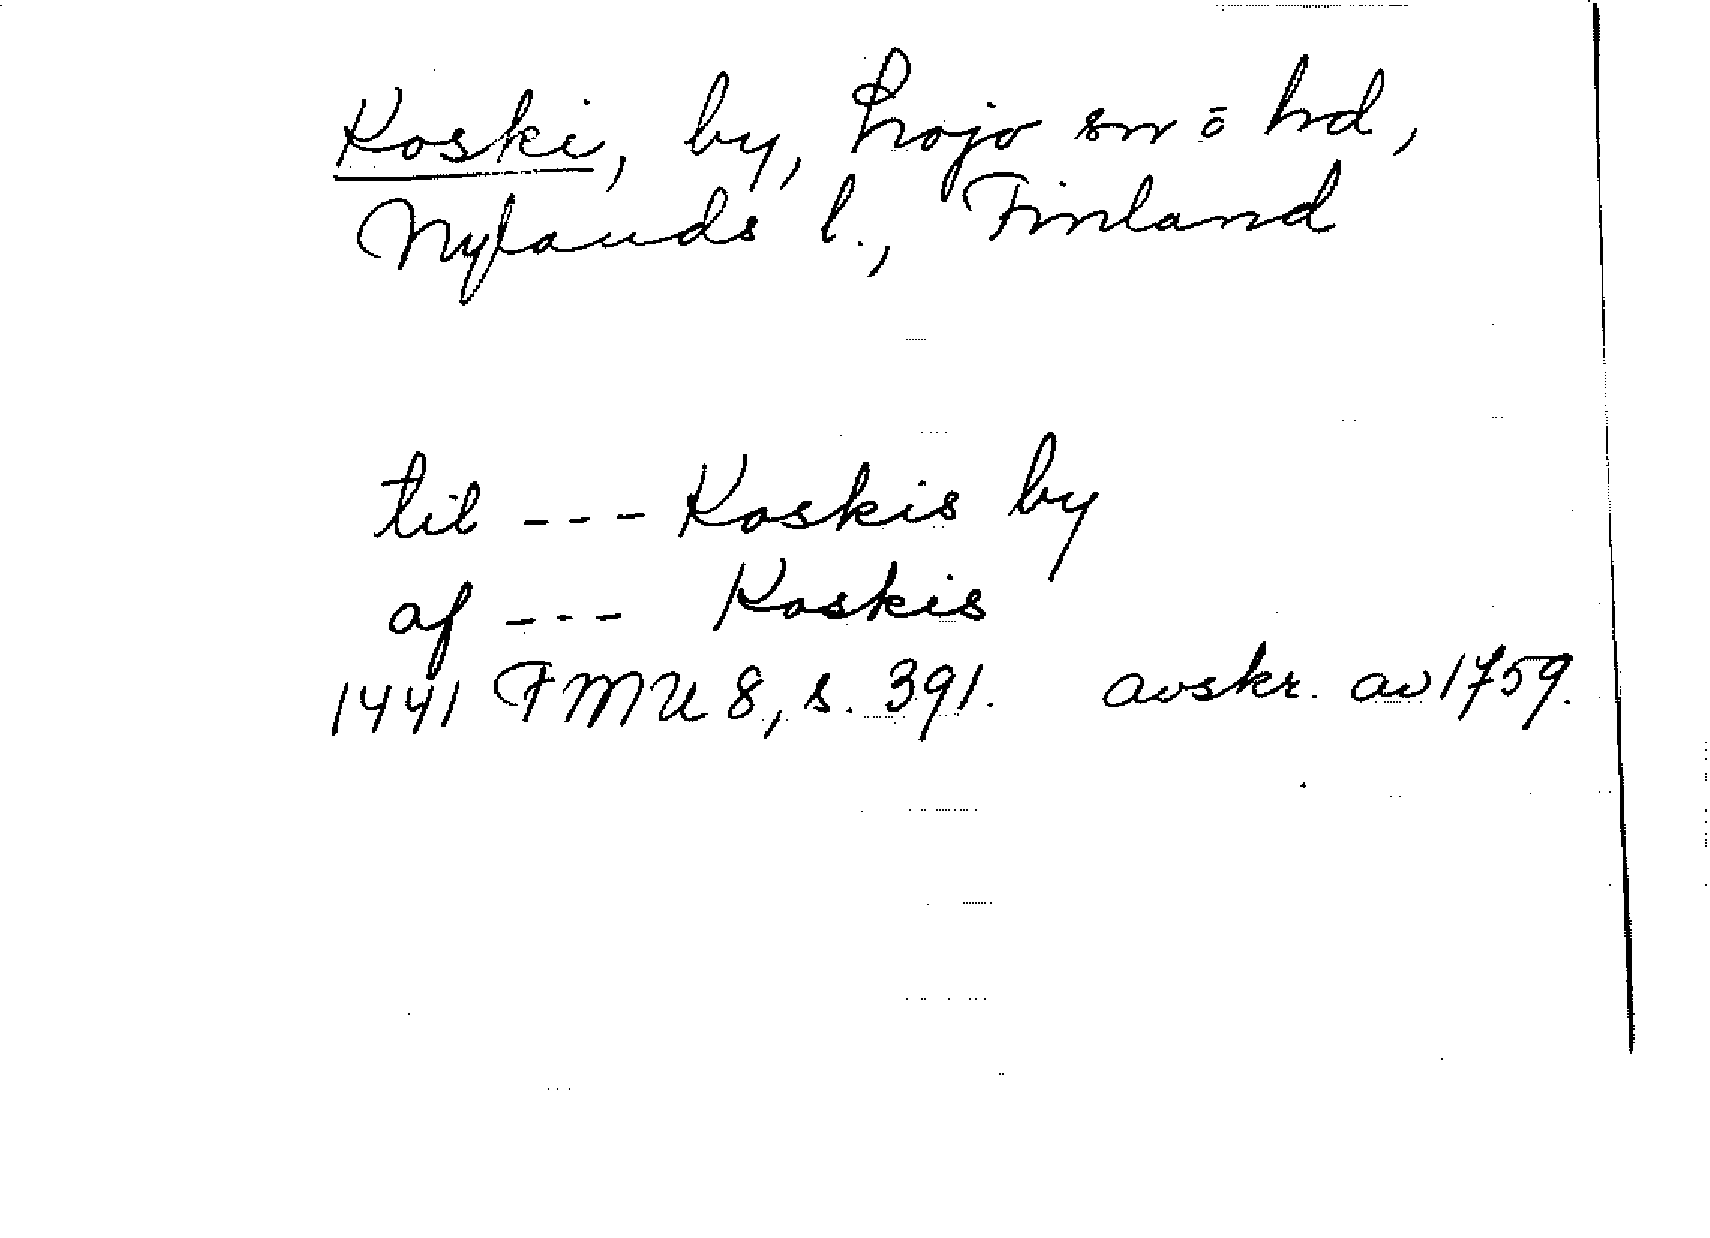 Koski, by, Lojo sn o hd,
Nylands l., Finland
til --- Koskis by
af --- Koskis
1441 FMU 8, s. 391. avskr. av 1759.